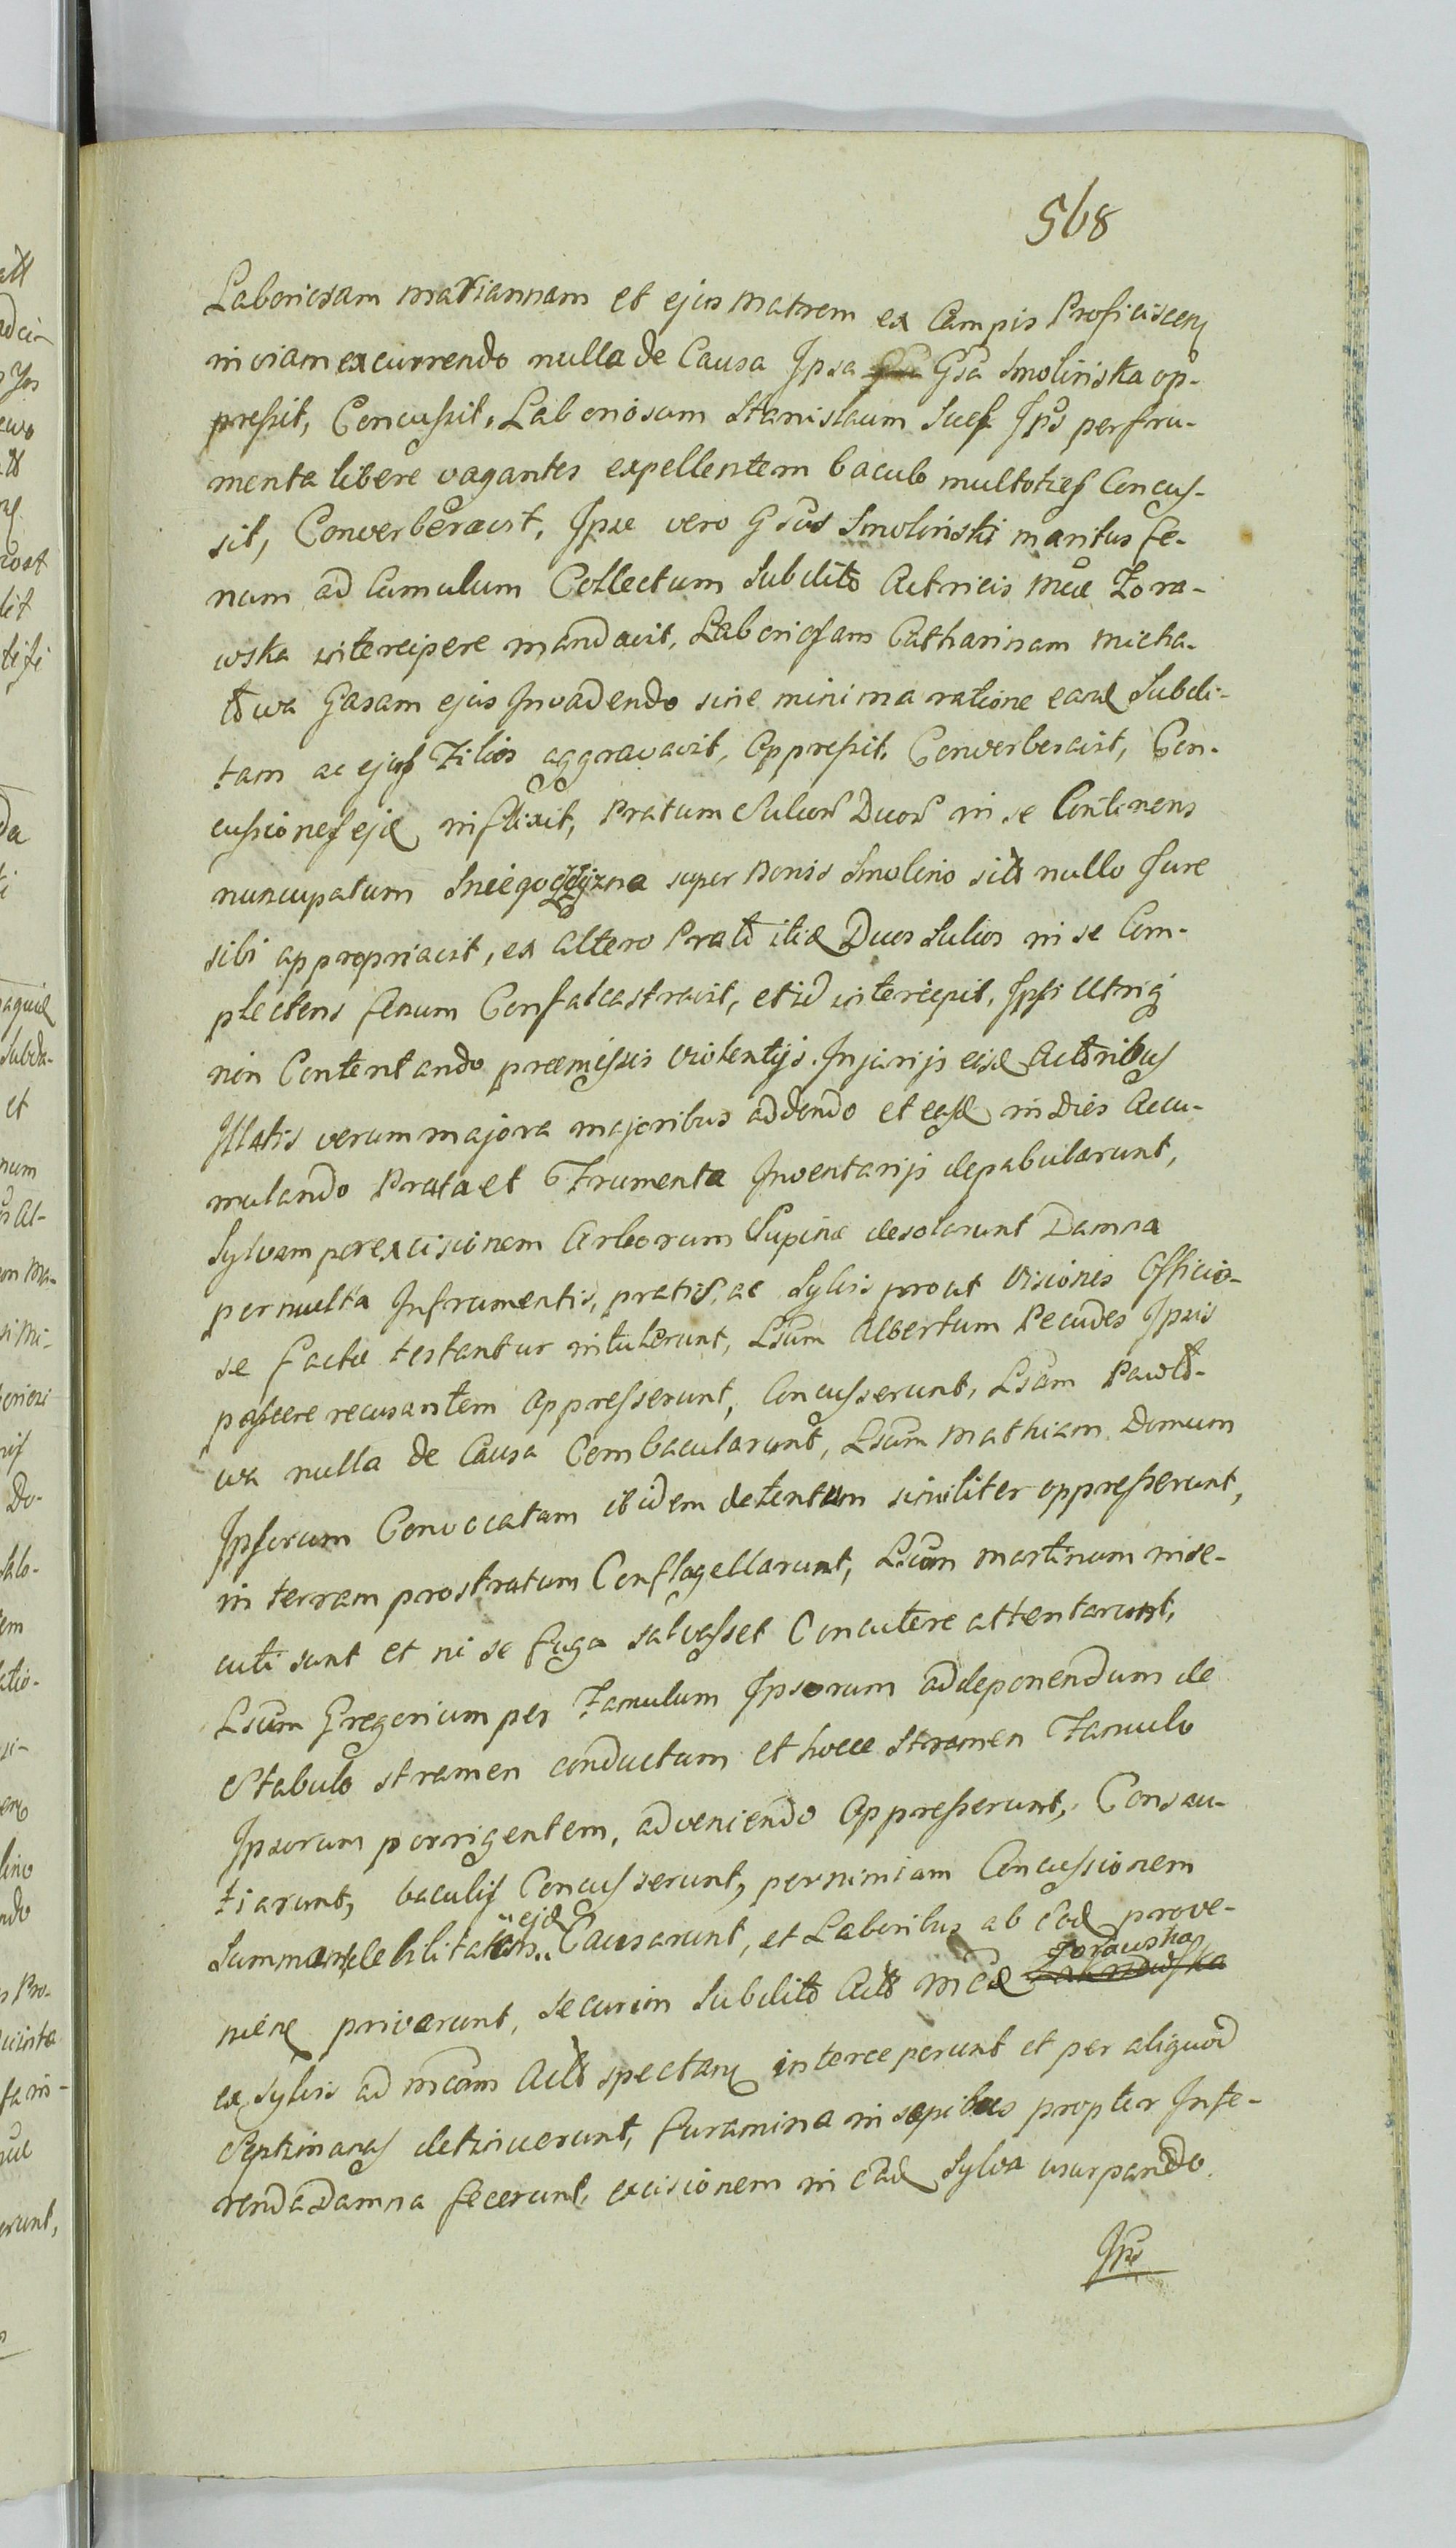 568
Laboriosam Mariannam et ejus Matrem ex Campis Proficiscen
in viam excurrendo nulla de Causa Ipsa Gsa Smolinska op-
pressit, Concussit, Laboriosum Stanislaum Sues Ips per fru-
menta libere vagantes expellentem baculo multoties Concus-
sit, Converberavit, Ipse vero Gsus Smolinski maritus fe-
num ad Cumulum Collectum Subdito Actricis Mcae Zora-
wska intercipere mandavit, Laboriosam Catharinam Micha-
łowa Casam ejus Invadendo sine minima ratione eand Subdi-
tam ac ejus Filios aggravavit, Oppressit, Converberavit, Con-
cussiones ejd inflixit, Pratum Sulcor Duor in se Continens
nuncupatum super Bonis Smolino sit nullo Jure
sibi appropriavit, ex altero Prato itid Duos Sulcos in se Com-
plectens fenum Confalcastravit, et id intercepit, Ipsi Utriq
non Contentando praemissis Violentijs Injurijs eisd Actoribus
Illatis verum majora majoribus addendo et easd in Dies Accu-
mulando Prata et Frumenta Inventarijs depabularunt,
Sylvam per excisionem Arborum Supine desolarunt Damna
permulta In frumentis, pratis, ac Sylvis prout Visiones Officio-
se factae testantur intulerunt, Lsum Albertum Pecudes Ipsis
pascere recusantem Oppresserunt, Concusserunt, Lsam Pawło-
wa nulla de Causa Combacularunt, Lsum Mathiam Domum
Ipsorum Convocatam ibidem detentum similiter oppresserunt,
in terram prostratum Conflagellarunt, Lsum Martinum inse-
cuti sunt et ni se fuga salvasset Concutere attentarunt,
Lsum Gregorium per Famulum Ipsorum ad deponendum de
Stabulo stramen conductum et hocce Stramen Famulo
Ipsorum porrigentem, adveniendo Oppresserunt, Consau-
tiarunt, baculis Concusserunt, per nimiam Concussionem
Summam debilitatem ejd Causarunt, et Laboribus ab Eod prove-
nien privarunt, securim Subdito Act Mcae Zorawska
ex Sylvis ad Mcam Act spectan interceperunt et per aliquod
Septimanas detinuerunt, foramina in sepibus propter Infe-
renda Damna fecerunt, excisionem in ead Sylva usurpando
Ips